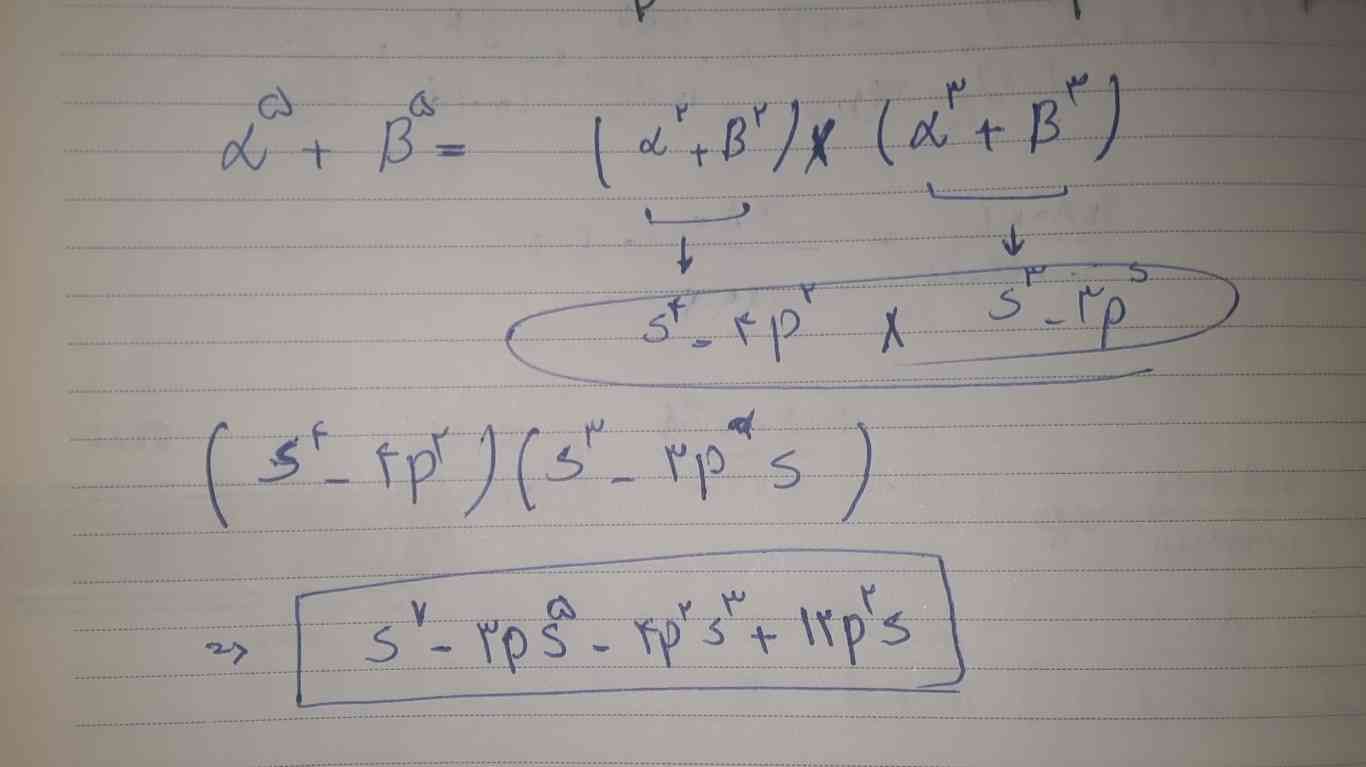 α^۵ + β^۵ = (α^۲ + β^۲) × (α^۳ + β^۳)
↓ ↓
s^۴ - ۴p^۲ × s^۳ - ۳p^s
(s^۴ - ۴p^۲)(s^۳ - ۳p s)
=> s^۷ - ۳ps^۵ - ۴p^۲s^۳ + ۱۲p^۳s